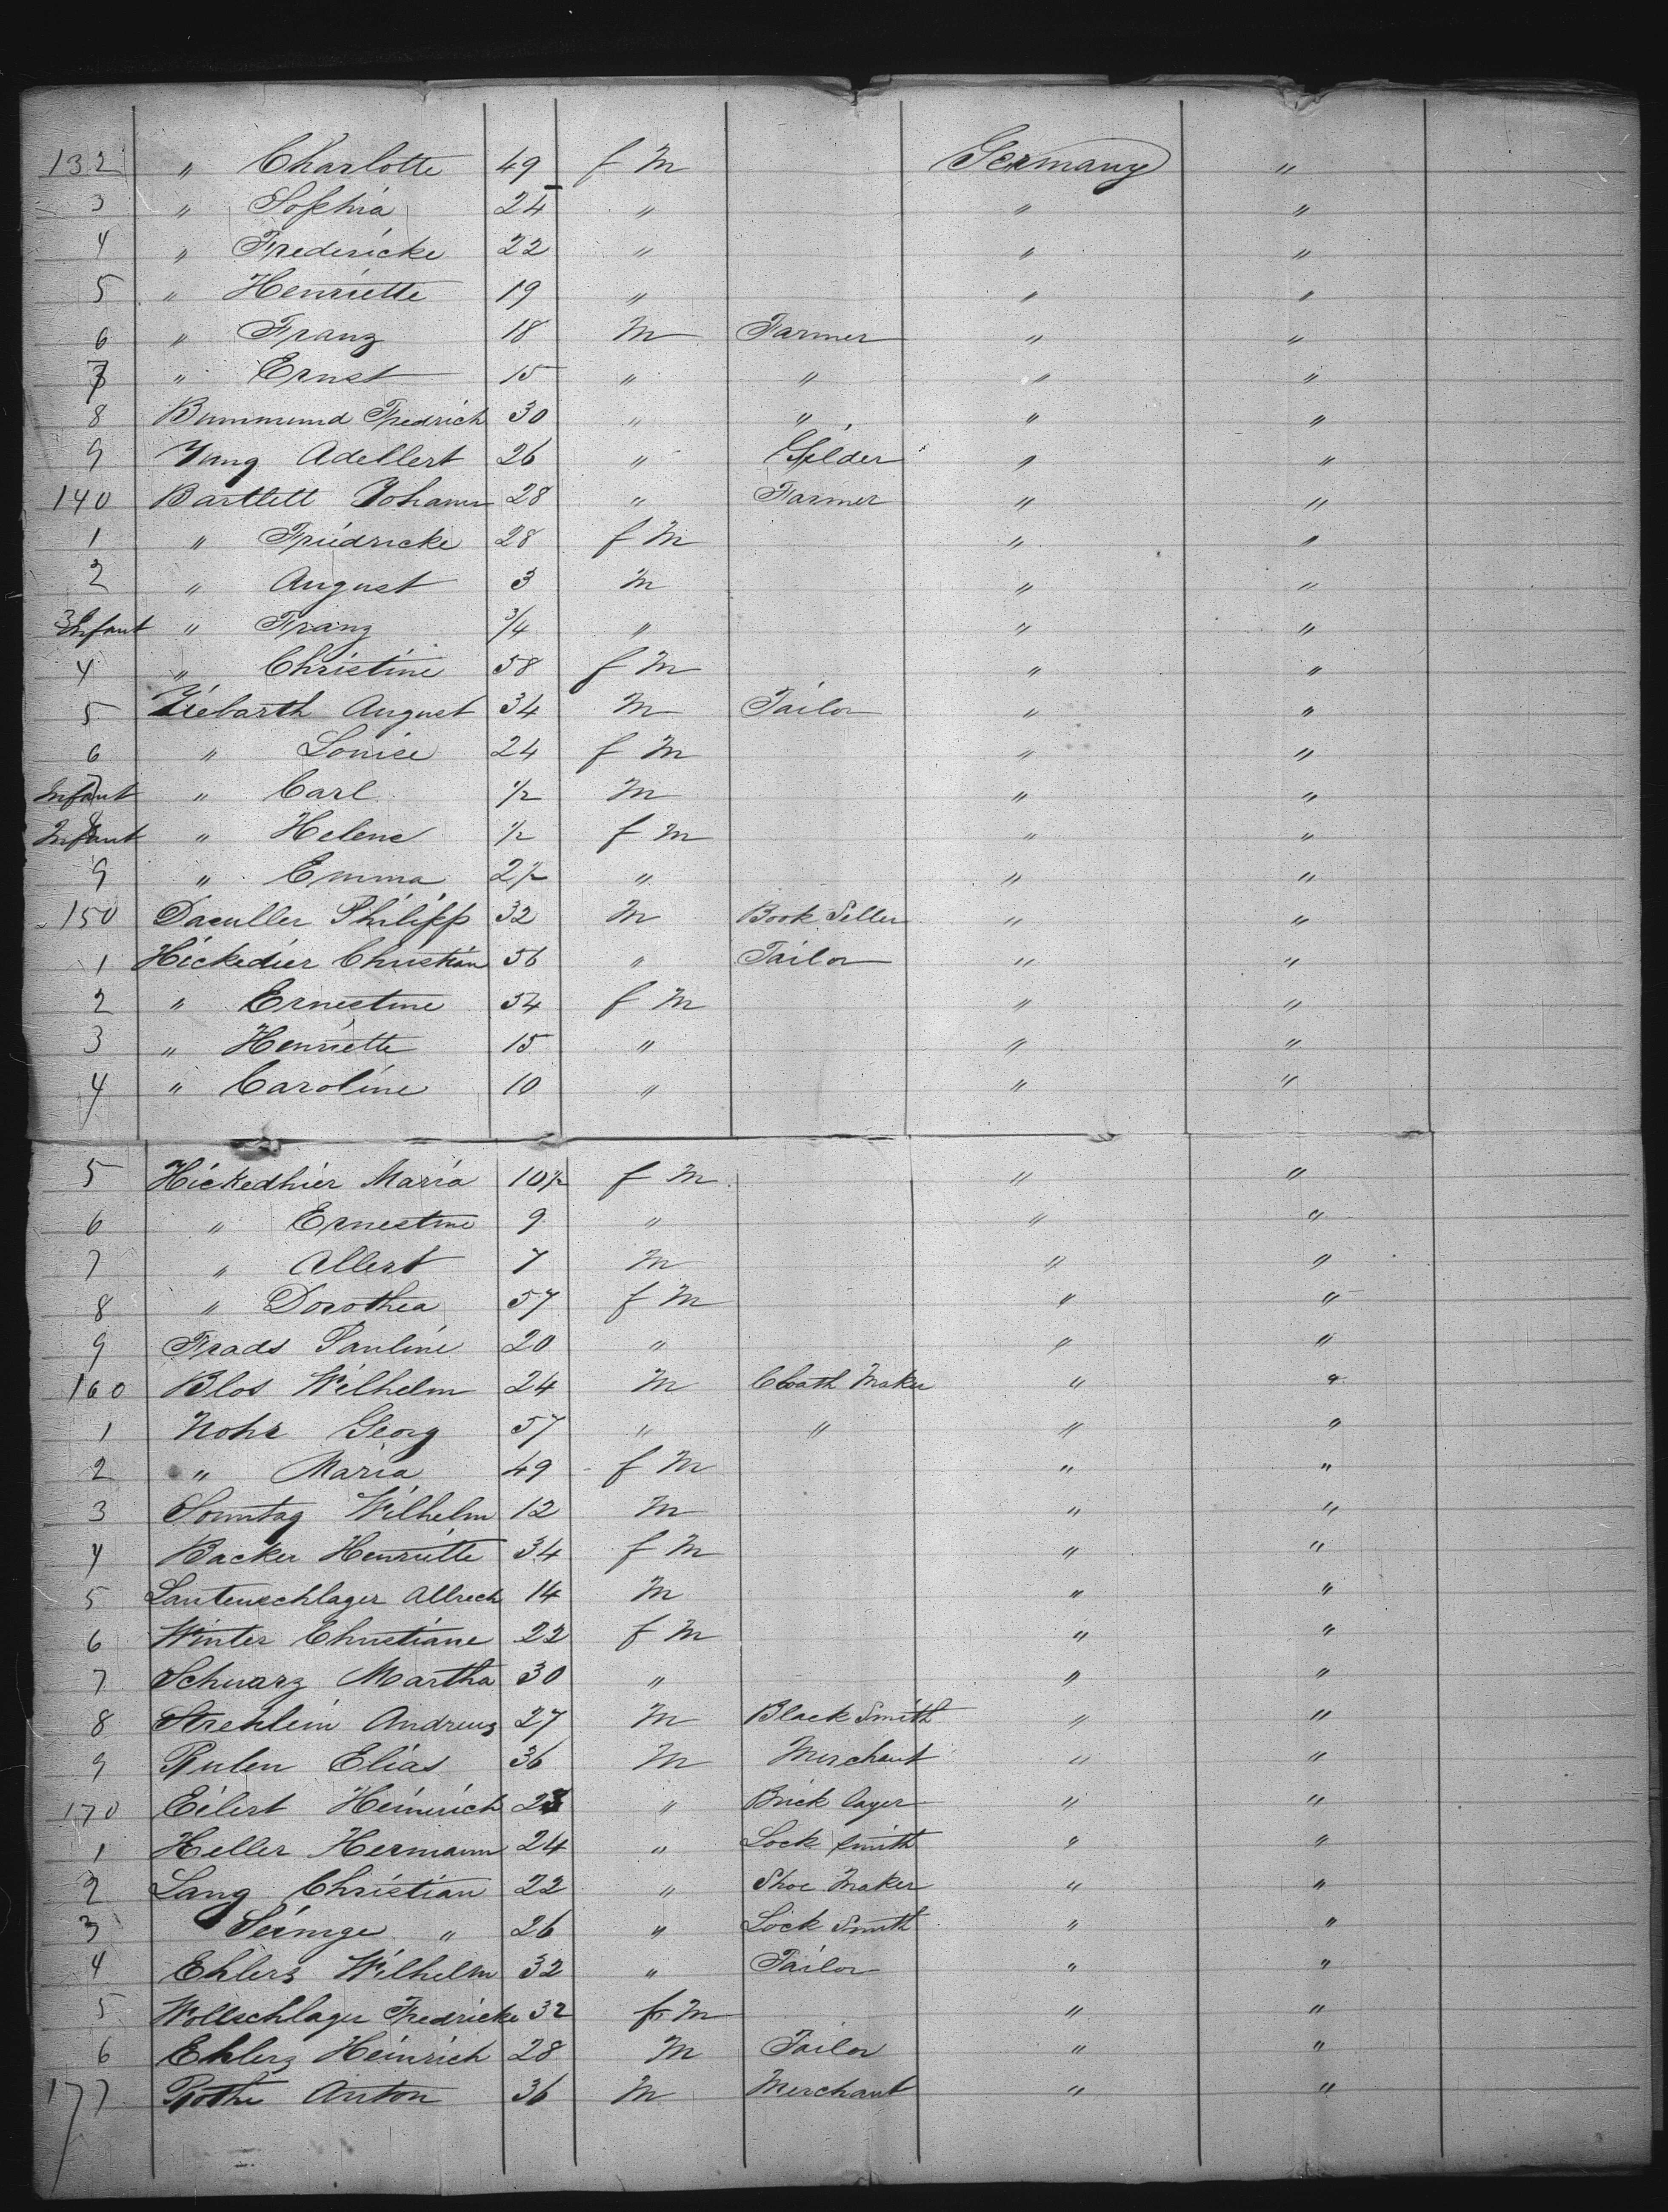 132 " Charlotte 49 f M Germany "
3 " Sophia 24 " " "
4 " Fredericke 22 " " "
5 " Henriette 19 " " "
6 " Franz 18 M Farmer " "
7 " Ernst 15 " " " "
8 Bummund Fredrich 30 " " " "
9 Yung Adellert 26 " Gilder " "
140 Bartlett Johann 28 " Farmer " "
1 " Friedricke 28 f M " "
2 " August 3 M " "
3 Infant " Franz 3/4 " " "
4 " Christine 58 f M " "
5 Ziebarth August 34 M Tailor " "
6 " Louise 24 f M " "
7 Infant " Carl 1/2 M " "
8 Infant " Helene 1/2 f M " "
9 " Emma 2 1/2 " " "
150 Daculler Philipp 32 M Book Seller " "
1 Hickedier Christian 56 " Tailor " "
2 " Ernestine 54 f M " "
3 " Henriette 15 " " "
4 " Caroline 10 " " "
5 Hickedhier Maria 10 1/2 f M " "
6 " Ernestine 9 " " "
7 " Allert 7 M " "
8 " Dorothea 57 f M " "
9 Frads Pauline 20 " " "
160 Blos Wilhelm 24 M Cloath Maker " "
1 Nohr Georg 57 " " " "
2 " Maria 49 f M " "
3 Sonntag Wilhelm 12 M " "
4 Backer Henriette 34 f M " "
5 Lautenschlager Allrech 14 M " "
6 Winter Christiane 22 f M " "
7 Schwarz Martha 30 " " "
8 Strehlein Andreus 27 M Black Smith " "
9 Rulen Elias 36 M Merchant " "
170 Eilert Heinrich 23 " Brick layer " "
1 Heller Hermann 24 " Lock smith " "
2 Lang Christian 22 " Shoe Maker " "
3 Seimge " 26 " Lock Smith " "
4 Ehlers Wilhelm 32 " Tailor " "
5 Wollschlager Fredricke 32 f M " "
6 Ehlers Heinrich 28 M Tailor " "
177 Rothe Anton 36 M Merchant " "